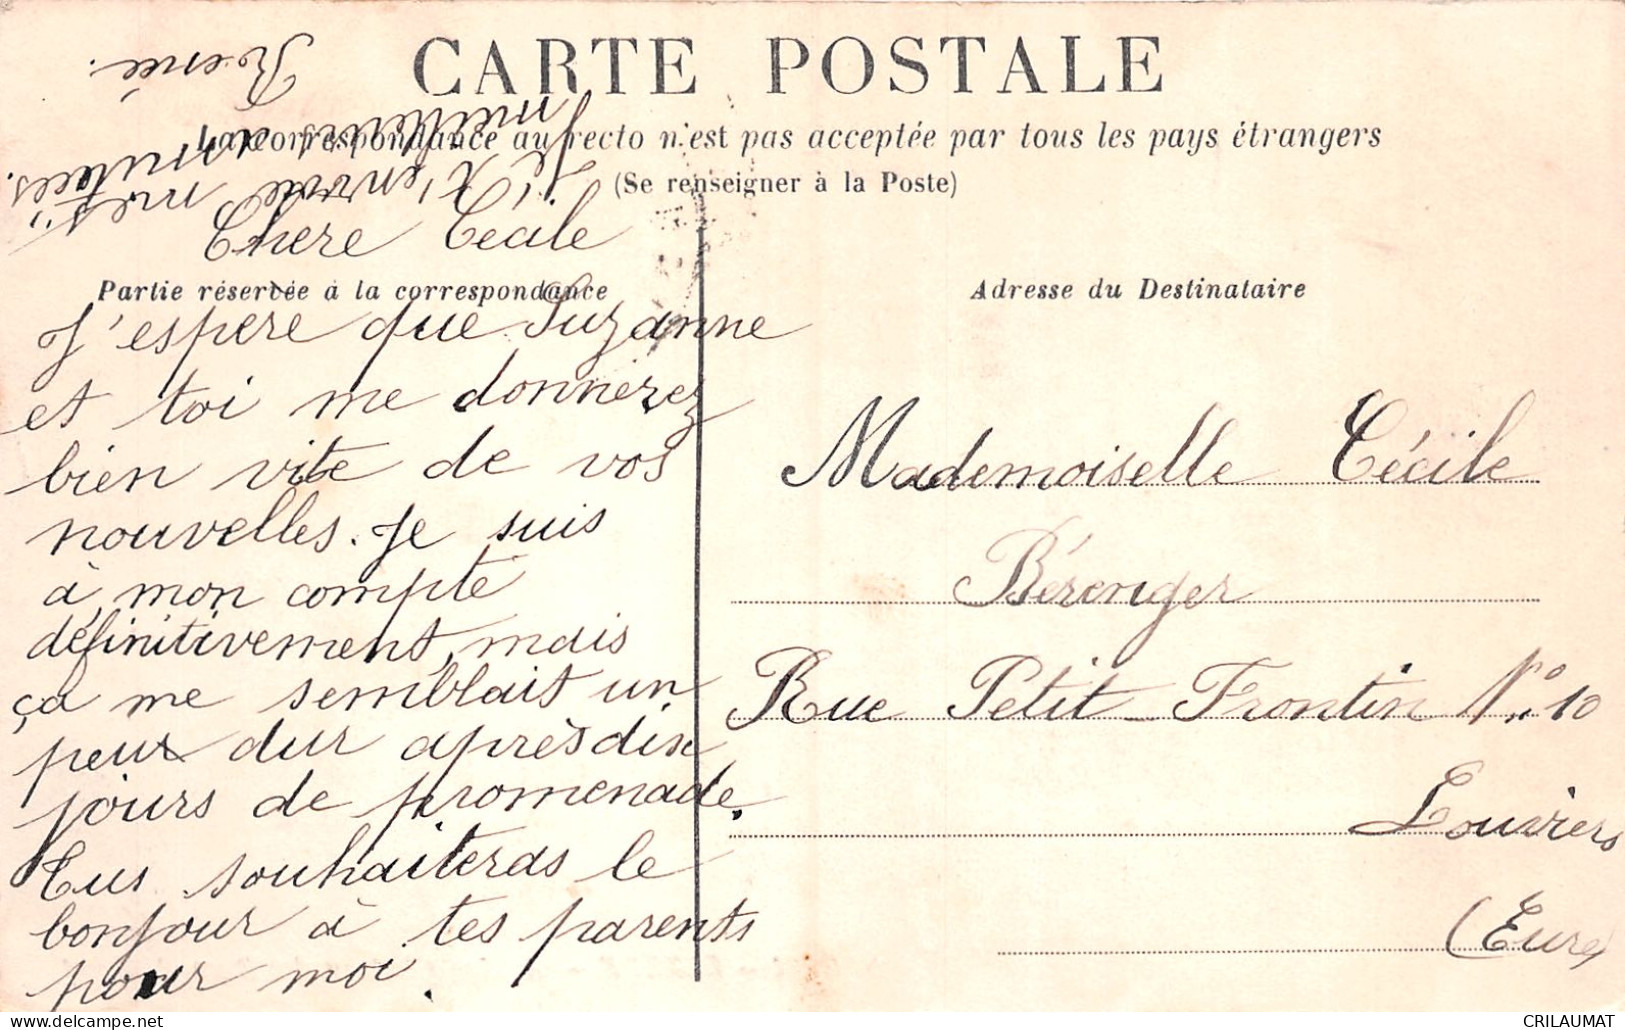 CARTE POSTALE
La correspondance au recto n'est pas acceptée par tous les pays étrangers
(Se renseigner à la Poste)
Partie réservée à la correspondance
Adresse du Destinataire
Chere Cécile
J'espere que Suzanne
et toi me donnerez
bien vite de vos
nouvelles. Je suis
à mon compte
définitivement, mais
ça me semblait un
peux dur après dix
jours de promenade.
Tus souhaiteras le
bonjour à tes parents
pour moi.
Je t'envoie mes
meilleures amitiées.
Renée.
Mademoiselle Cécile
Bérenger
Rue Petit-Frontin No 10
Louviers
(Eure)
CRILAUMAT